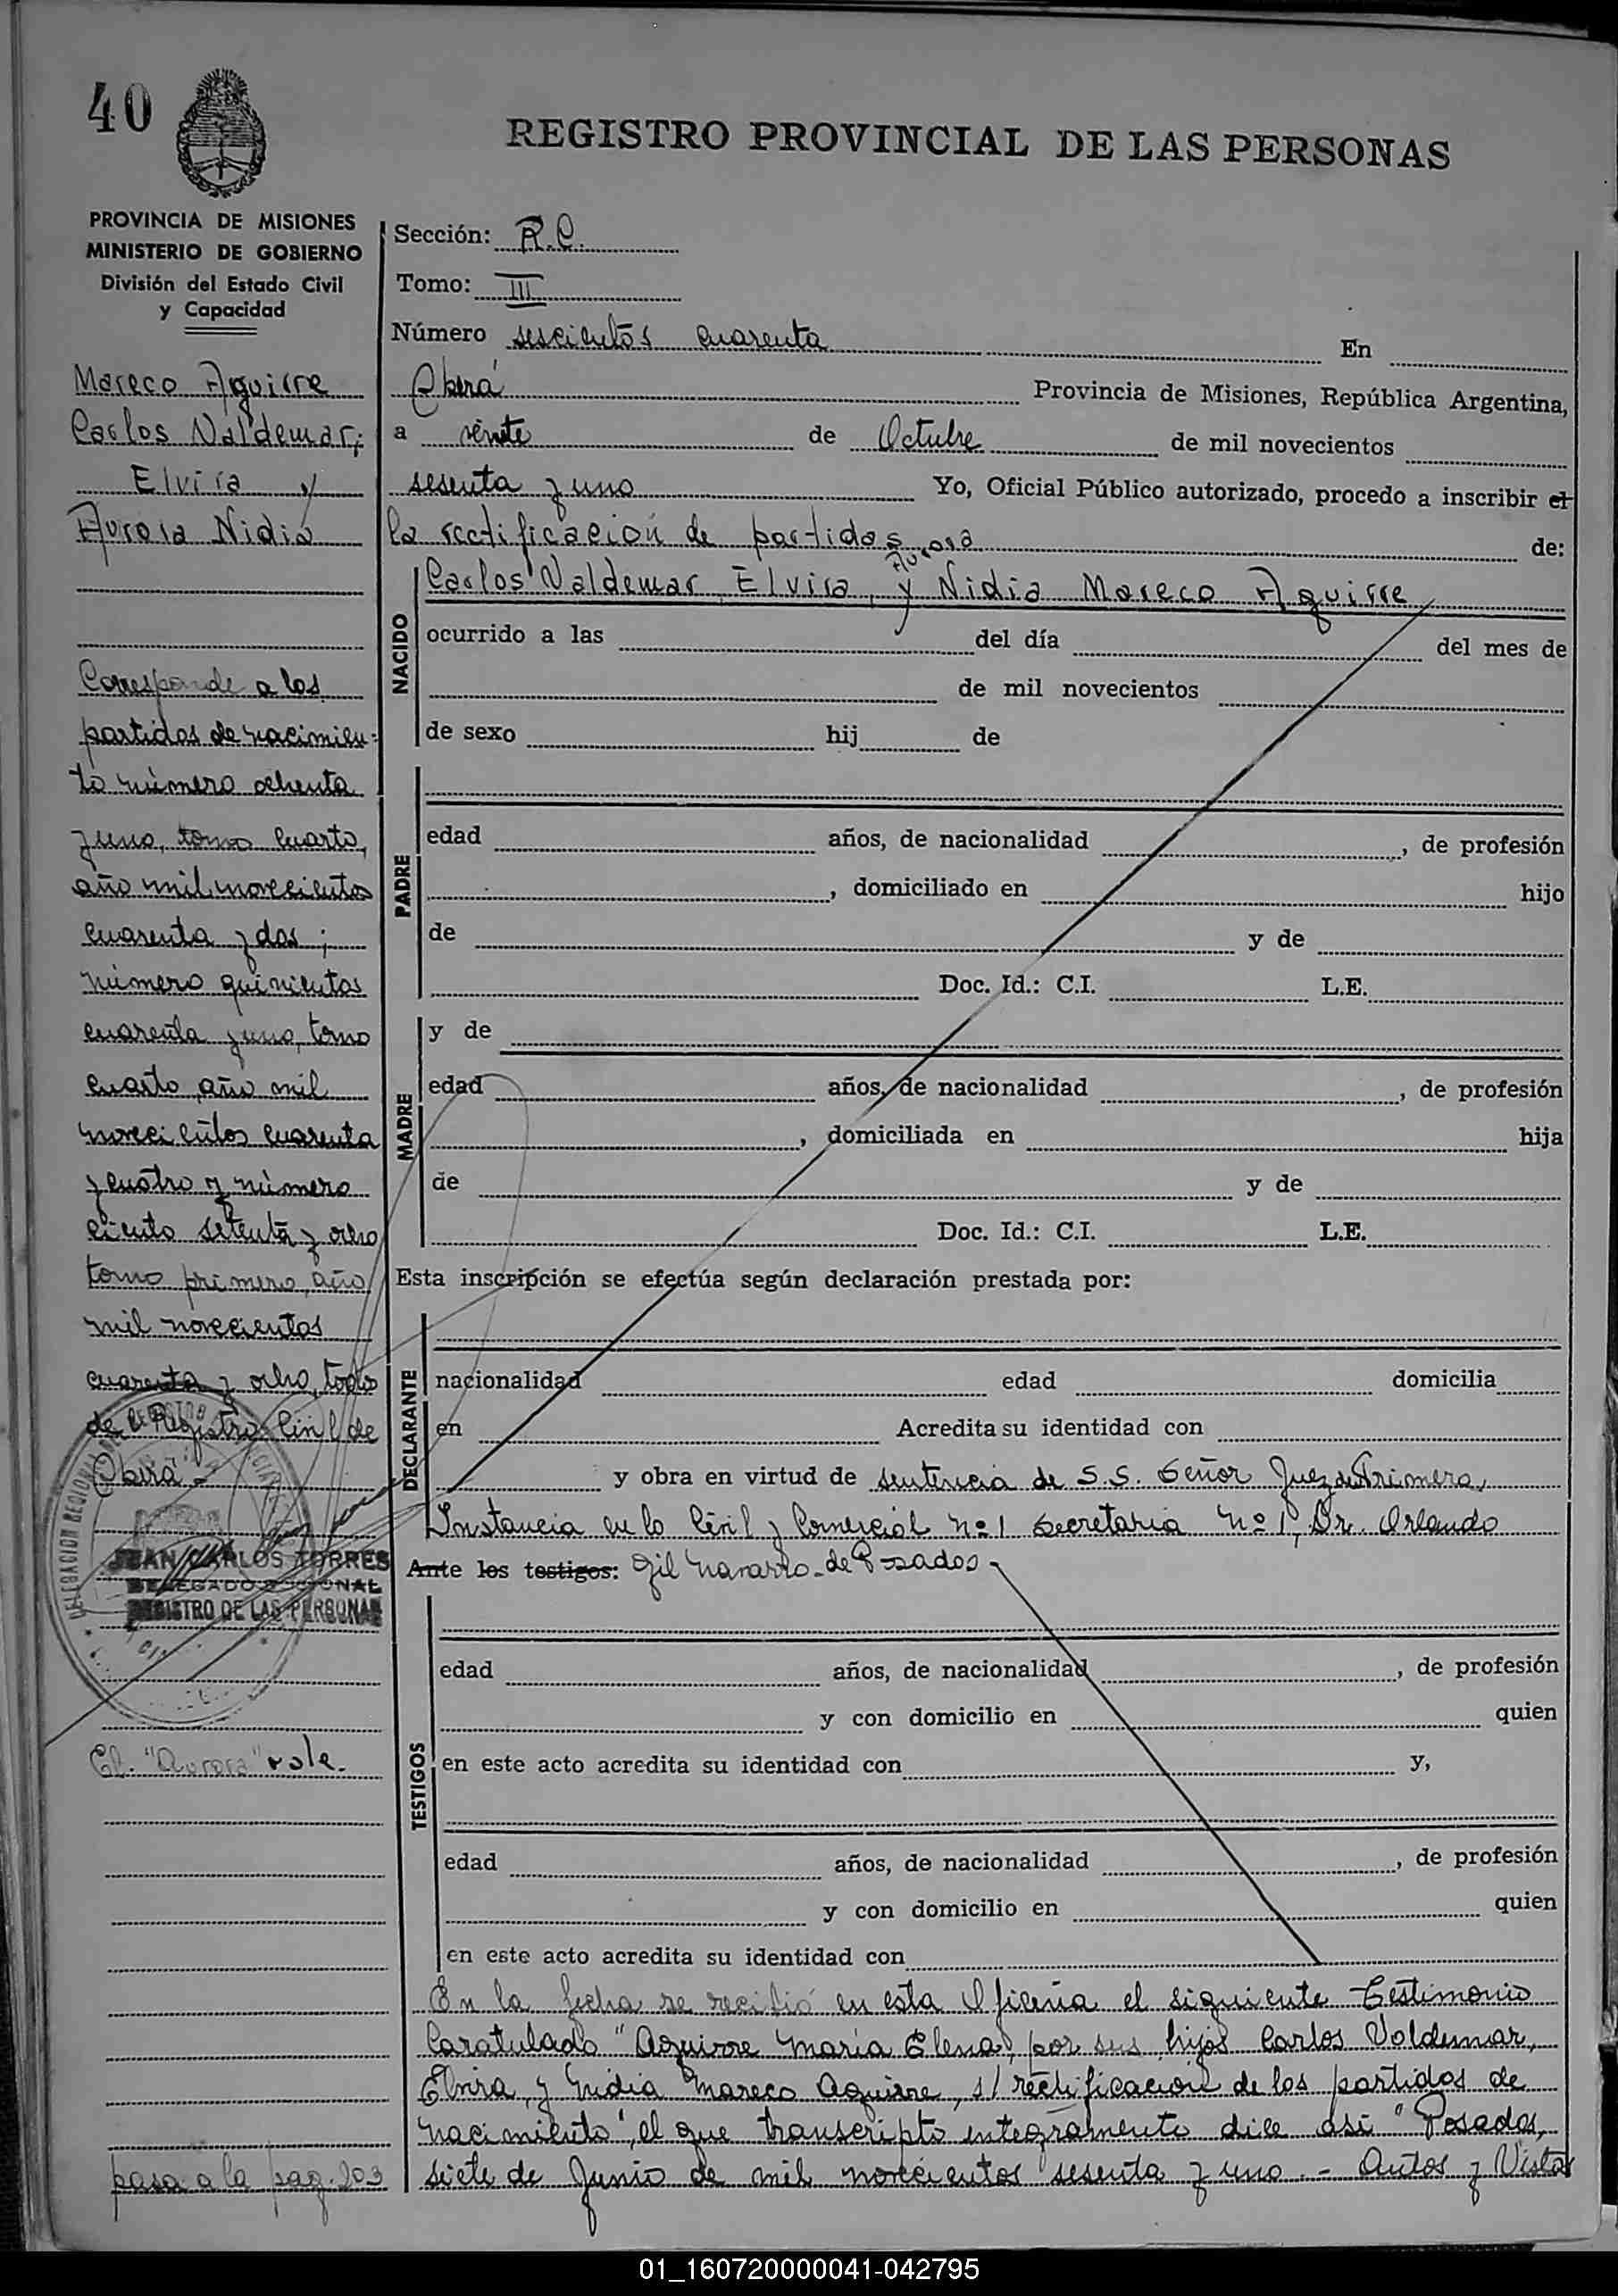 40
REGISTRO PROVINCIAL DE LAS PERSONAS
PROVINCIA DE MISIONES
MINISTERIO DE GOBIERNO
División del Estado Civil
y Capacidad
Mareco Aguirre
Carlos Valdemar;
Elvira y
Aurora Nidia
Corresponde a las
partidas de nacimien-
to número ochenta
y uno, tomo cuarto,
año mil novecientos
cuarenta y dos;
número quinientos
cuarenta y uno, tomo
cuarto, año mil
novecientos cuarenta
y cuatro y número
ciento setenta y ocho
tomo primero, año
mil novecientos
cuarenta y ocho, todo
del Registro Civil de
Oberá.-
JUAN CARLOS TORRES
DELEGADO REGIONAL
REGISTRO DE LAS PERSONAS
El. "Aurora" vale.
pasa a la pag. 203
Sección: R.C.
Tomo: III
Número sescientos cuarenta En
Oberá Provincia de Misiones, República Argentina,
a veinte de Octubre de mil novecientos
sesenta y uno Yo, Oficial Público autorizado, procedo a inscribir el
la rectificación de partidas de:
Aurora
Carlos Valdemar, Elvira, y Nidia Mareco Aguirre
NACIDO
ocurrido a las del día del mes de
de mil novecientos
de sexo hij de
PADRE
edad años, de nacionalidad , de profesión
, domiciliado en hijo
de y de
Doc. Id.: C.I. L.E.
MADRE
y de
edad años, de nacionalidad , de profesión
, domiciliada en hija
de y de
Doc. Id.: C.I. L.E.
Esta inscripción se efectúa según declaración prestada por:
DECLARANTE
nacionalidad edad domicilia
en Acredita su identidad con
y obra en virtud de sentencia de S.S. Señor Juez de Primera
Instancia en lo Civil y Comercial nº 1 Secretaria nº 1, Dr. Orlando
Ante los testigos: Gil Navarro.- de Posadas-
TESTIGOS
edad años, de nacionalidad , de profesión
y con domicilio en quien
en este acto acredita su identidad con y,
edad años, de nacionalidad , de profesión
y con domicilio en quien
en este acto acredita su identidad con
En la fecha se recibió en esta Oficina el siguiente Testimonio
Caratulado "Aguirre Maria Elena, por sus hijos Carlos Valdemar,
Elvira, y Nidia Mareco Aguirre, s/ rectificación de las partidas de
nacimiento", el que transcripto integramente dice asi "Posadas,
siete de Junio de mil novecientos sesenta y uno - Autos y Vistos
01_160720000041-042795